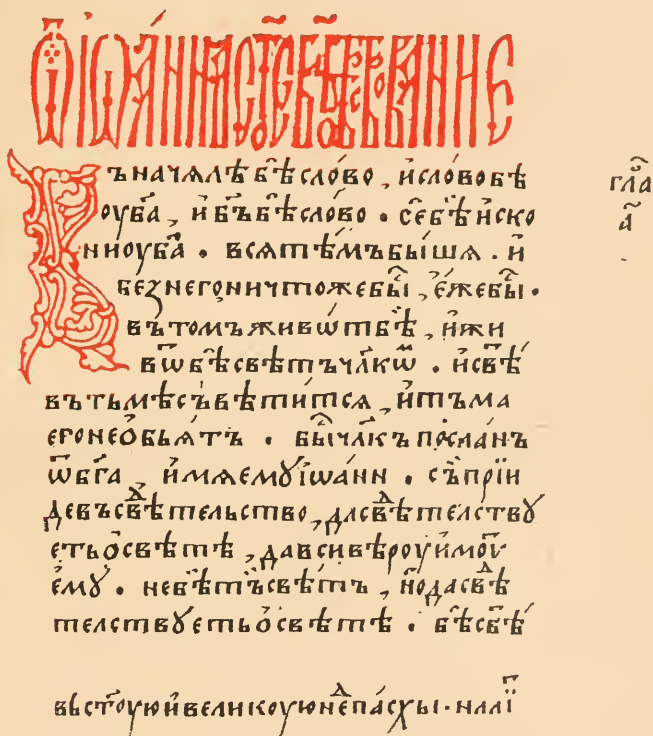 Ѿ іѡа́нна ст҃е бл҃говѣствованиѥ
Въначѧлѣ бѣ̀ сло́во , и҆слово бѣ
оу҆ б҃а , и҆ бъ҃ бѣ̀ сло́во . се́ бѣ̀ и҆ско
ни оу҆ б҃а . всѧ тѣ́мъ бы́шѧ . и҆
без него ничтоже бы̑ , е҆́же бы̑ .
въ томъ живѡⷮ бѣ̀ , и҆ жи
вѡⷮ бѣ̀ свѣтъ чл҃кѡⷨ . и҆ свѣⷮ
въ тьмѣ съвѣ́титсѧ , и҆ тъма
его не ѻ҆бьѧтъ . бы̑ чл҃къ посланъ
ѿ бг҃а и҆мѧ емꙋ̀ і҆ѡа́нн . съ̀ прїи
де въ свѣⷣтельство , да свѣⷣтелствꙋ
етъ ѻ҆ свѣтѣ , да вси вѣроу и҆моуⷮ
е҆мꙋ . не бѣ̀ тъ̀ свѣтъ , но҆ да свѣⷣ
телствꙋетъ ѻ҆ свѣтѣ . бѣ̀ свѣⷮ
въ ст҃оую и҆ великоую неⷣ пасхы .
гла҃
а҃